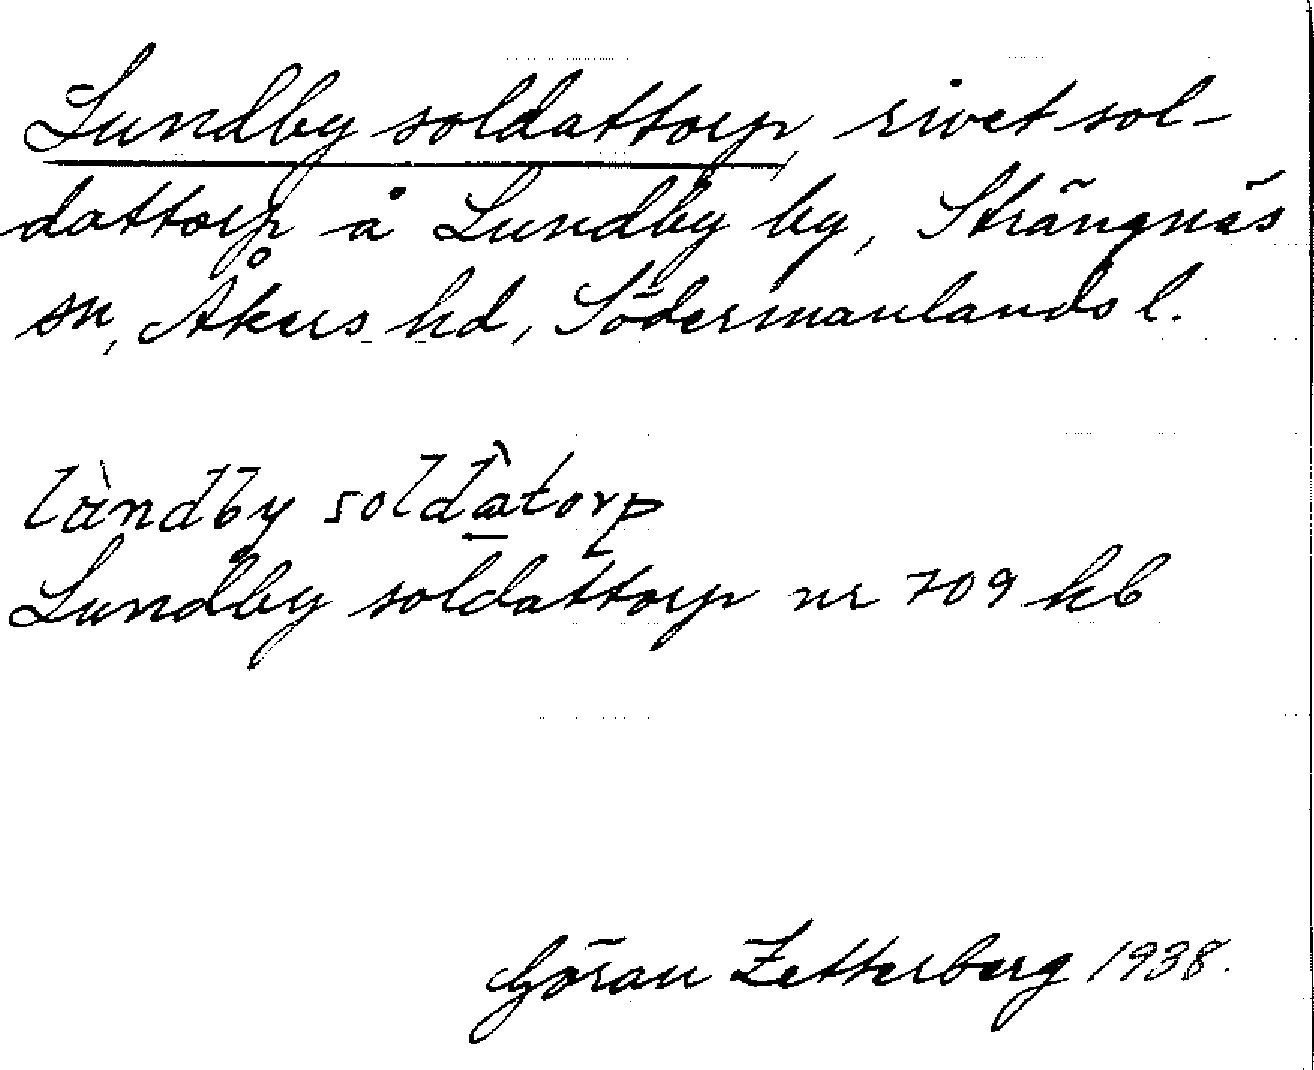 Lundby soldattorp, rivet sol-
dattorp å Lundby by, Strängnäs
sn, Åkers hd, Södermanlands l.
soldàtorp
Lundby soldattorp nr 709 kb
Göran Zetterberg 1938.